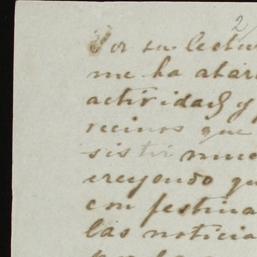 2/
Por su lectu
me ha abar
actividad y
vecinos que
sistir muc
creyendo qu
con festina
las noticia